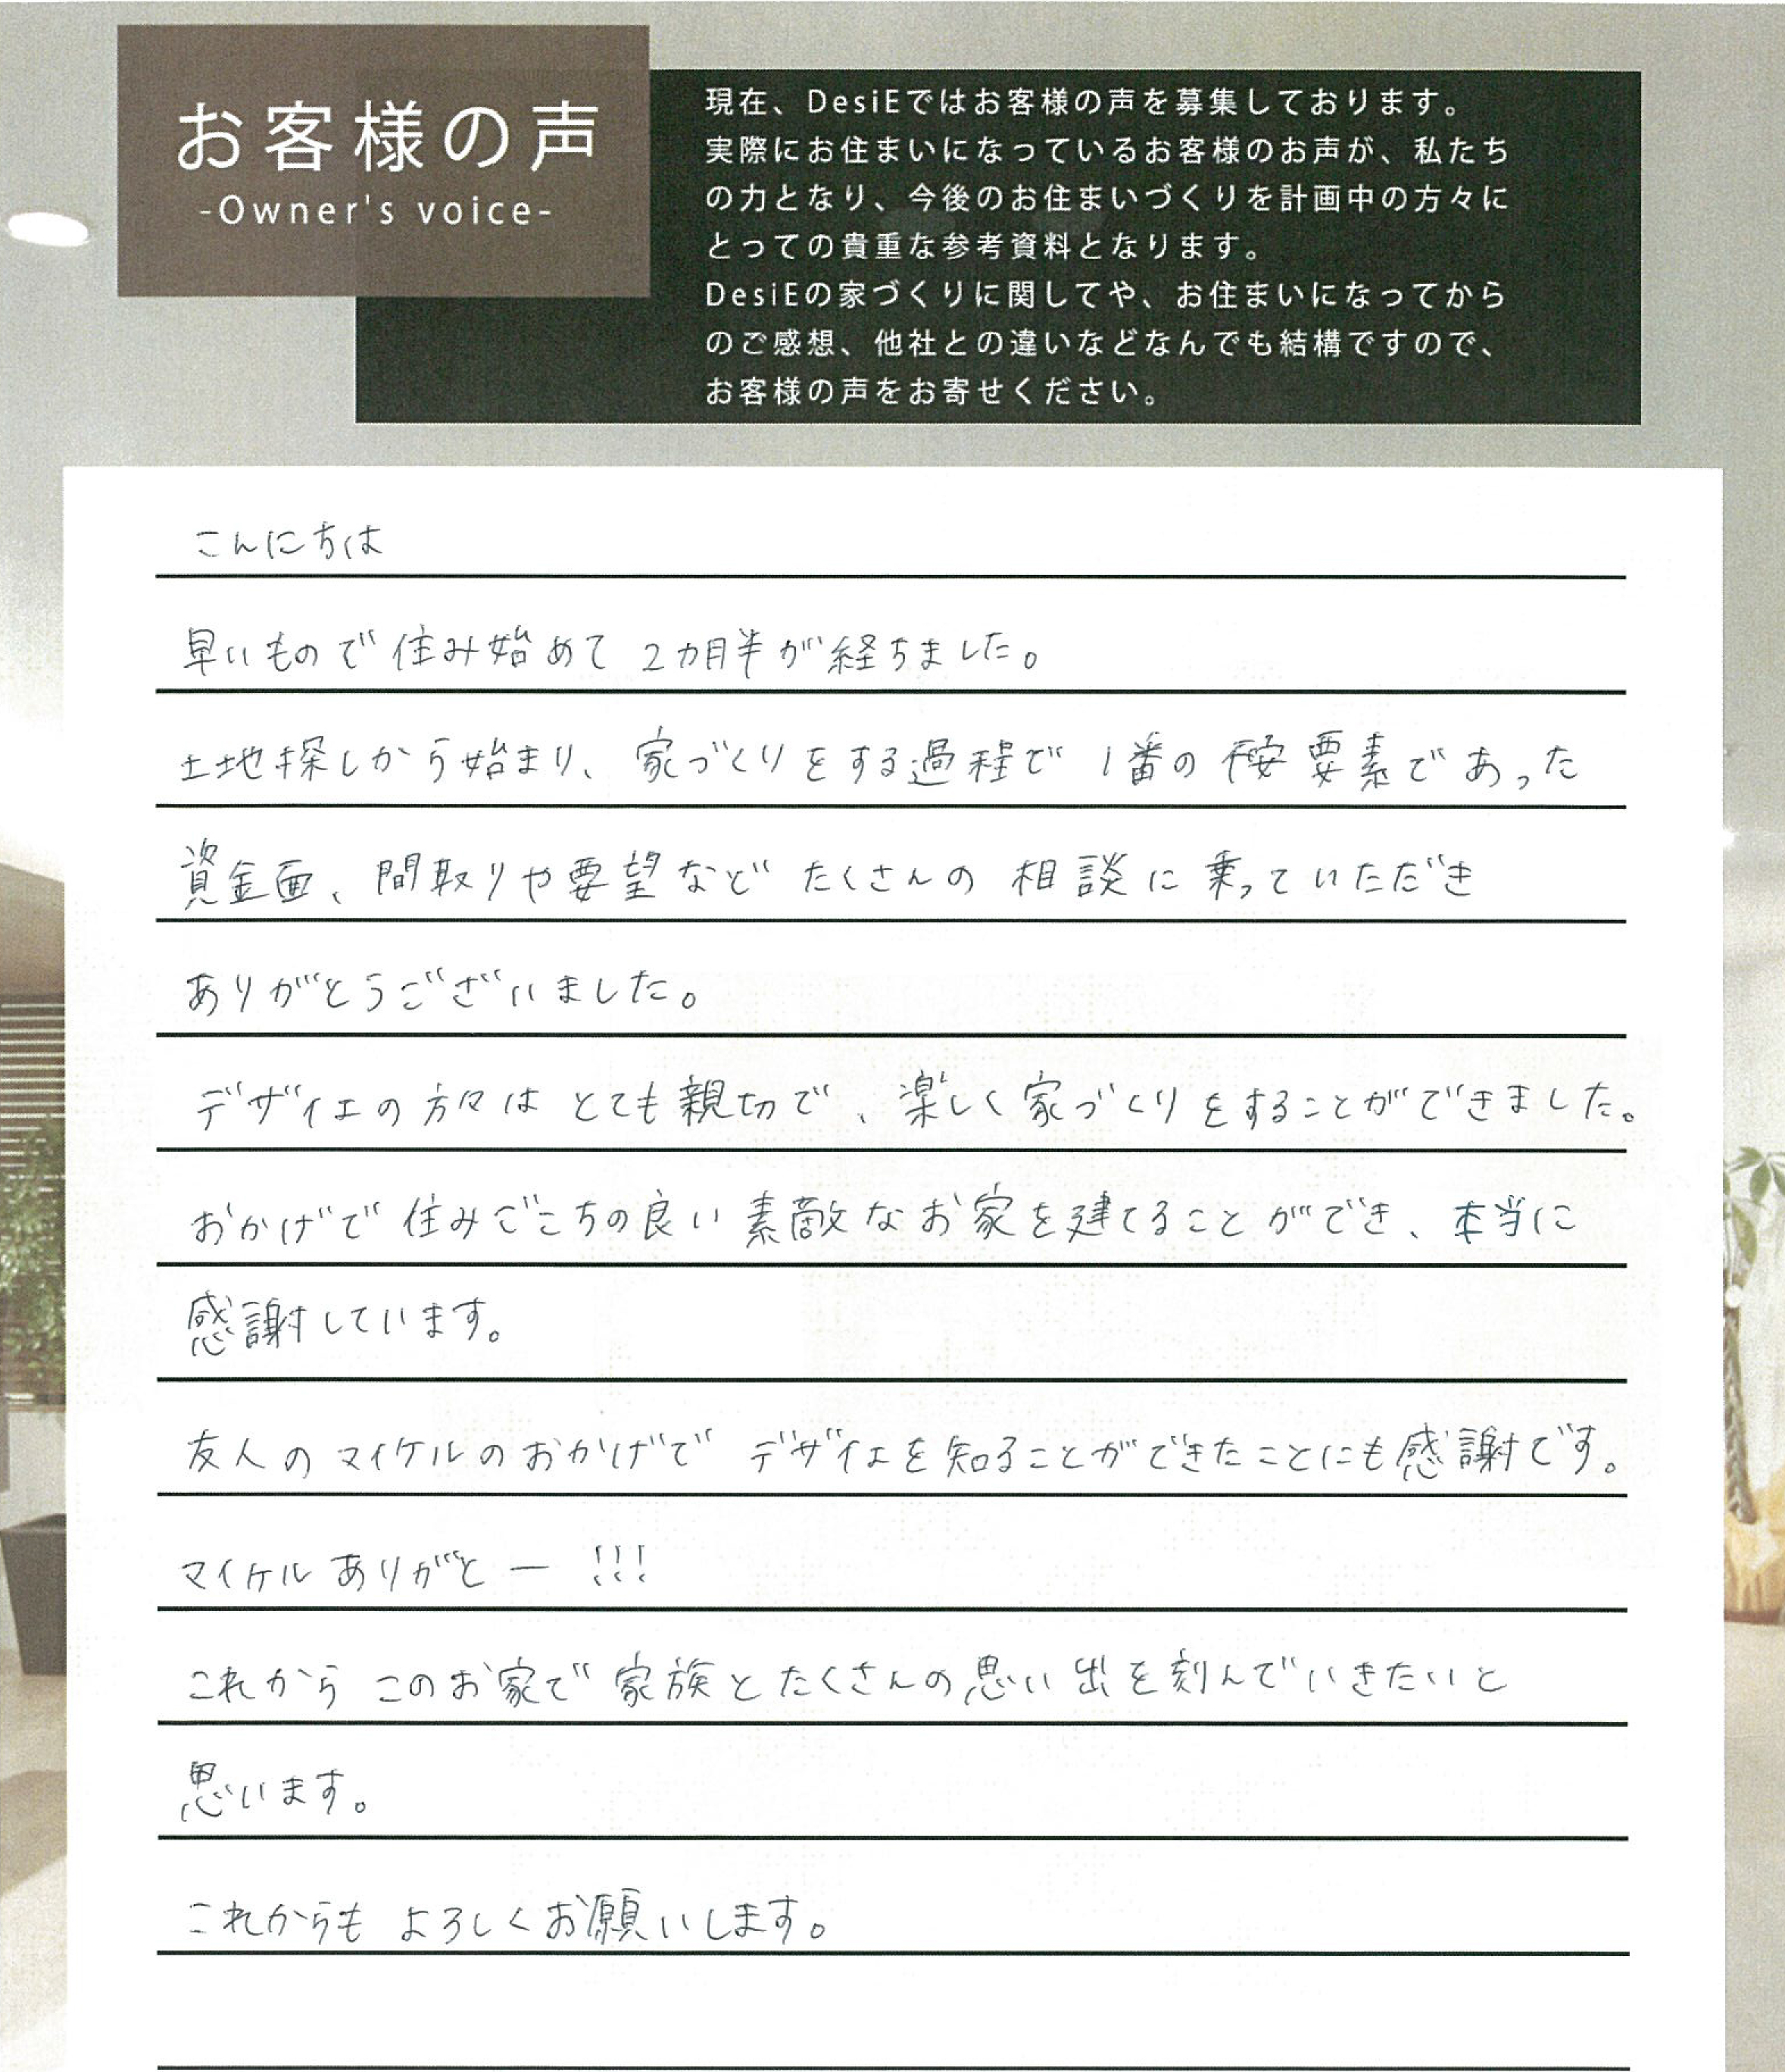 お客様の声
-Owner's voice-
現在、DesiEではお客様の声を募集しております。
実際にお住まいになっているお客様のお声が、私たち
の力となり、今後のお住まいづくりを計画中の方々に
とっての貴重な参考資料となります。
DesiEの家づくりに関してや、お住まいになってから
のご感想、他社との違いなどなんでも結構ですので、
お客様の声をお寄せください。
こんにちは
早いもので住み始めて2カ月半が経ちました。
土地探しから始まり、家づくりをする過程で1番の不安要素であった
資金面、間取りや要望などたくさんの相談に乗っていただき
ありがとうございました。
デザイエの方々はとても親切で、楽しく家づくりをすることができました。
おかげで住みごこちの良い素敵なお家を建てることができ、本当に
感謝しています。
友人のマイケルのおかげでデザイエを知ることができたことにも感謝です。
マイケルありがとー!!!
これからこのお家で家族とたくさんの思い出を刻んでいきたいと
思います。
これからもよろしくお願いします。